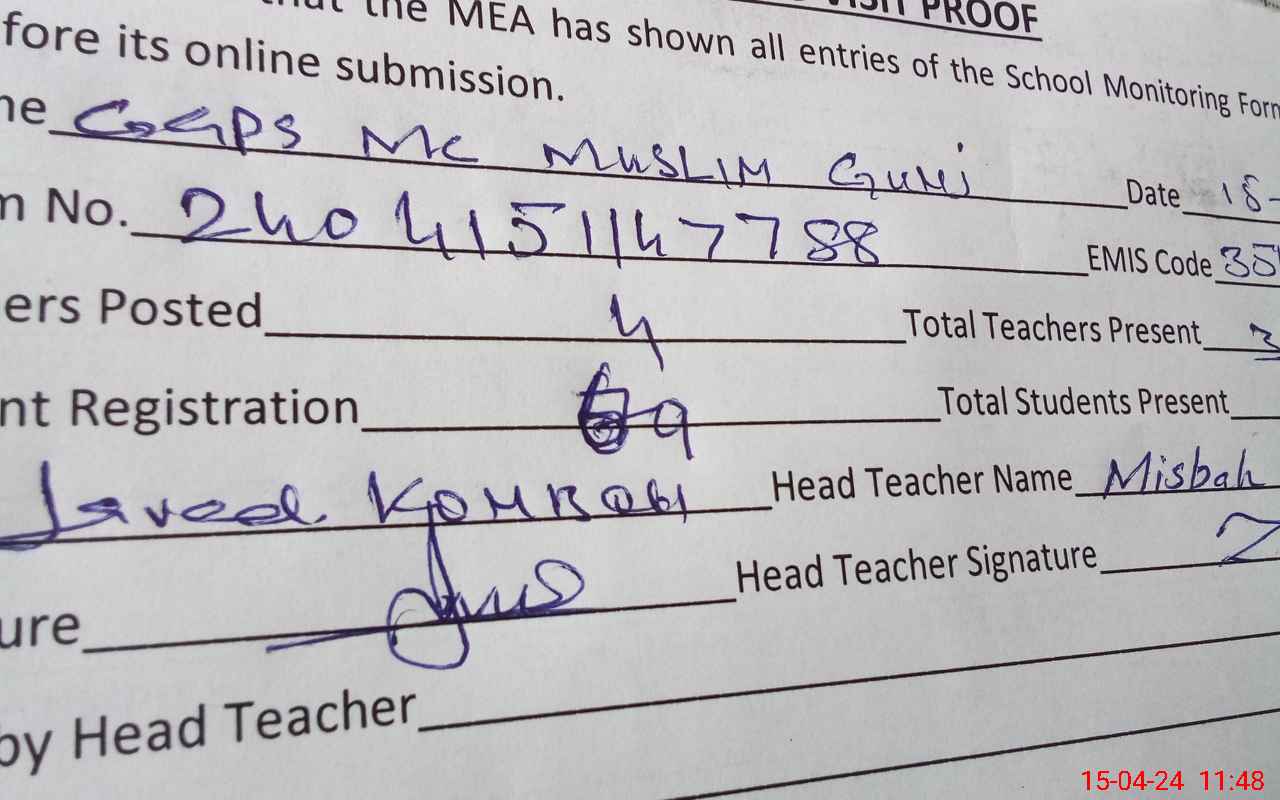 VISIT PROOF
that the MEA has shown all entries of the School Monitoring Form
fore its online submission.
me GGPS MC MUSLIM Guni Date 18-
m No. 2404151147788 EMIS Code 35
ers Posted 4 Total Teachers Present 3
nt Registration 69 Total Students Present
Javed Head Teacher Name Misbah
ure Head Teacher Signature
by Head Teacher
15-04-24 11:48